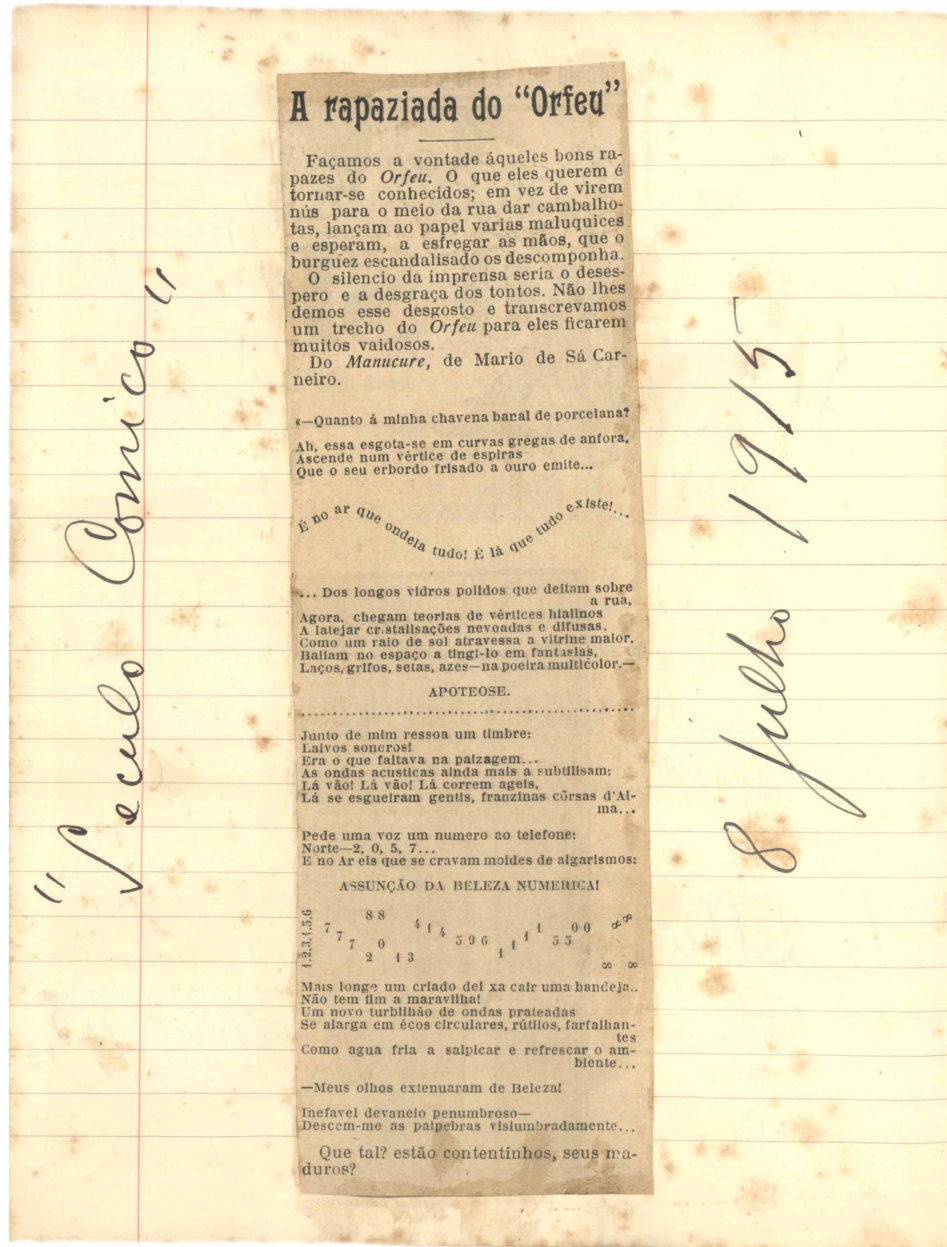 "Seculo Comico"
A rapaziada do "Orfeu"
Façamos a vontade áqueles bons ra-
pazes do Orfeu. O que eles querem é
tornar-se conhecidos; em vez de virem
nús para o meio da rua dar cambalho-
tas, lançam ao papel varias maluquices
e esperam, a esfregar as mãos, que o
burguez escandalisado os descomponha.
O silencio da imprensa seria o deses-
pero e a desgraça dos tontos. Não lhes
demos esse desgosto e transcrevamos
um trecho do Orfeu para eles ficarem
muitos vaidosos.
Do Manucure, de Mario de Sá Car-
neiro.
«—Quanto á minha chavena banal de porcelana?
Ah, essa esgota-se em curvas gregas de anfora,
Ascende num vértice de espiras
Que o seu erbordo frisado a ouro emite...
É no ar que ondeia tudo! É lá que tudo existe!...
... Dos longos vidros polidos que deitam sobre
a rua,
Agora, chegam teorias de vértices hialinos
A latejar cristalisações nevoadas e difusas.
Como um raio de sol atravessa a vitrine maior,
Bailam no espaço a tingi-lo em fantasias,
Laços, grifos, setas, azes—na poeira multicolor.—
APOTEOSE.
Junto de mim ressoa um timbre:
Laivos sonoros!
Era o que faltava na paizagem...
As ondas acusticas ainda mais a subtilisam:
Lá vão! Lá vão! Lá correm ageis,
Lá se esgueiram gentis, franzinas côrsas d'Al-
ma...
Pede uma voz um numero ao telefone:
Norte—2, 0, 5, 7...
E no Ar eis que se cravam moldes de algarismos:
ASSUNÇÃO DA BELEZA NUMERICA!
1.2.3.4.5.6 7 7 7 8 8 0 2 4 3 4 1 4 5 9 6 1 1 1 1 5 5 0 0 8 8 8 8
Mais longe um criado dei xa cair uma bandeja..
Não tem fim a maravilha!
Um novo turbilhão de ondas prateadas
Se alarga em écos circulares, rútilos, farfalhan-
tes
Como agua fria a salpicar e refrescar o am-
biente...
—Meus olhos extenuaram de Beleza!
Inefavel devaneio penumbroso—
Descem-me as palpebras vislumbradamente...
Que tal? estão contentinhos, seus ma-
duros?
8 Julho 1915